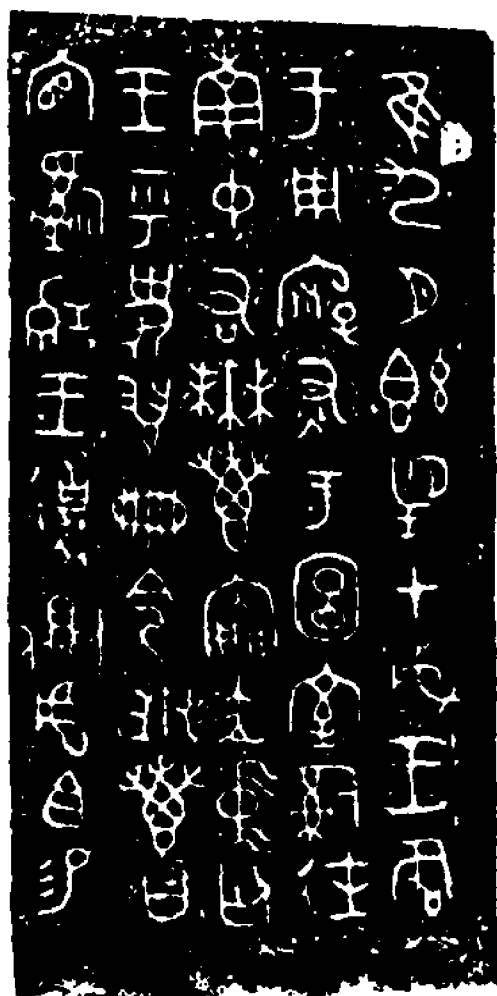 隹九月既望甲戌王各
于周廟述于圖室嗣徒
南中右無叀內門立中廷
王乎史翏冊令無叀曰
官嗣王虎易